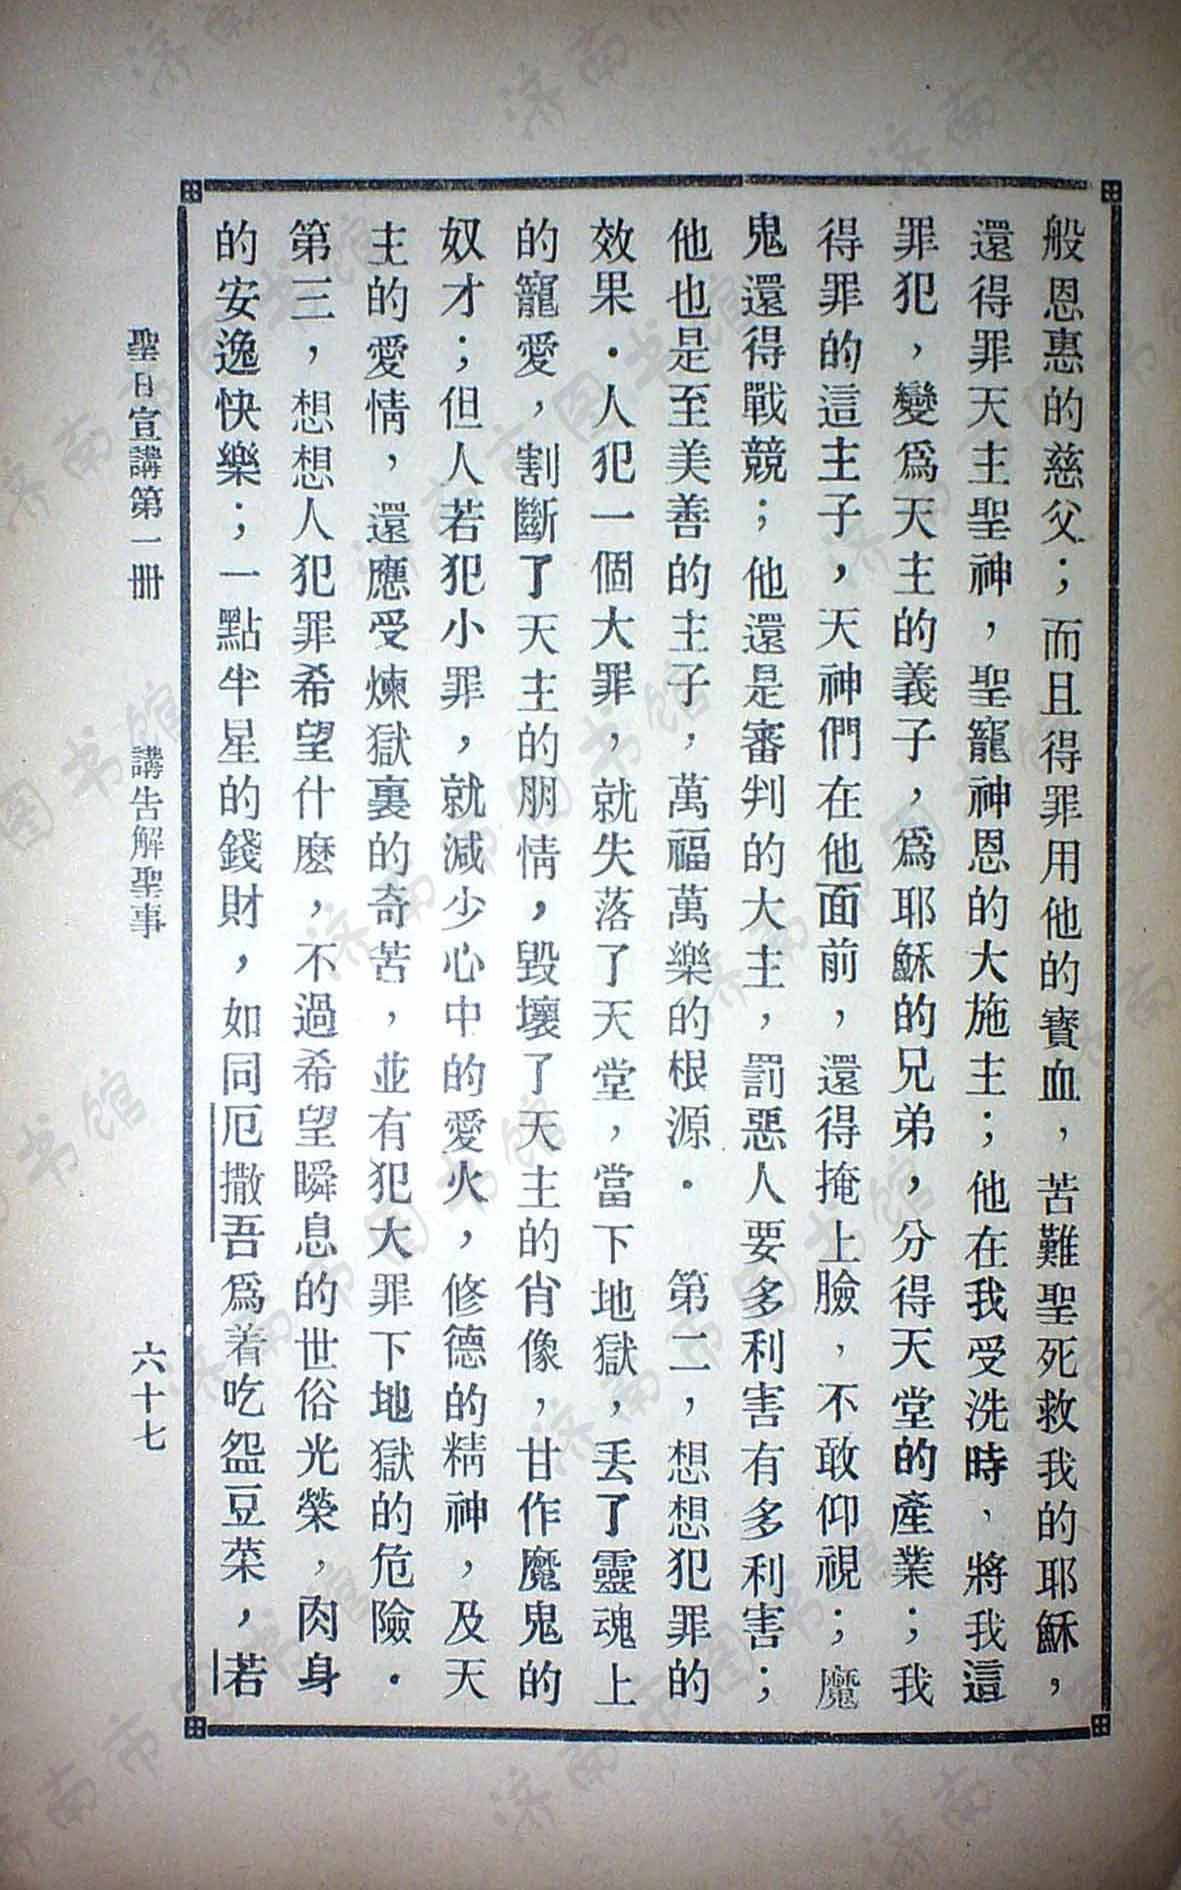 般恩惠的慈父；而且得罪用他的寶血，苦難聖死救我的耶穌，
還得罪天主聖神，聖寵神恩的大施主；他在我受洗時，將我這
罪犯，變爲天主的義子，爲耶穌的兄弟，分得天堂的產業；我
得罪的這主子，天神們在他面前，還得掩上臉，不敢仰視；魔
鬼還得戰競；他還是審判的大主，罰惡人要多利害有多利害；
他也是至美善的主子，萬福萬樂的根源．　第二，想想犯罪的
效果．人犯一個大罪，就失落了天堂，當下地獄，丟了靈魂上
的寵愛，割斷了天主的朋情，毀壞了天主的肖像，甘作魔鬼的
奴才；但人若犯小罪，就減少心中的愛火，修德的精神，及天
主的愛情，還應受煉獄裏的奇苦，並有犯大罪下地獄的危險．
第三，想想人犯罪希望什麽，不過希望瞬息的世俗光榮，肉身
的安逸快樂；一點半星的錢財，如同厄撒吾爲着吃盌豆菜，若
聖日宣講第一冊　講告解聖事　六十七
济南市图书馆